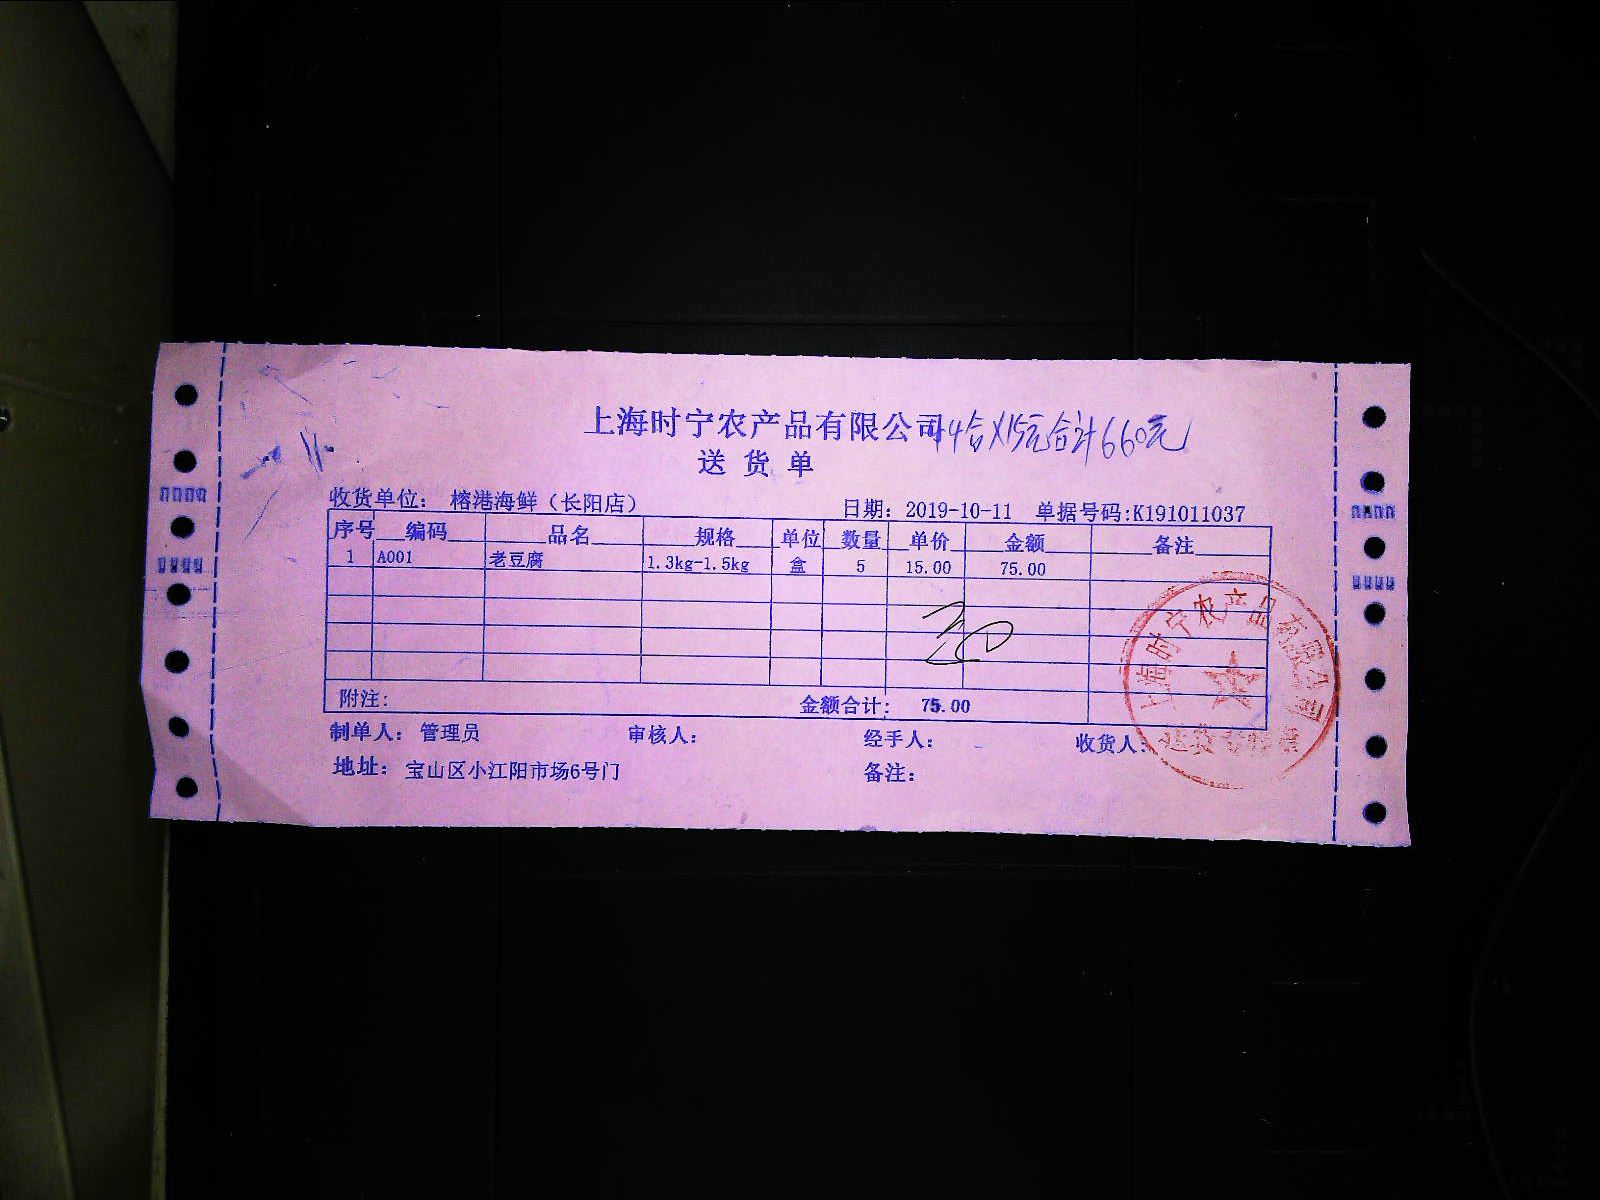 上海时宁农产品有限公司 44合X15元合计660元
送货单
收货单位: 榕港海鲜（长阳店） 日期: 2019-10-11 单据号码:K191011037
序号 编码 品名 规格 单位 数量 单价 金额 备注
1 A001 老豆腐 1.3kg-1.5kg 盒 5 15.00 75.00
附注: 金额合计: 75.00
制单人: 管理员 审核人: 经手人: 收货人:
地址: 宝山区小江阳市场6号门 备注:
上海时宁农产品有限公司